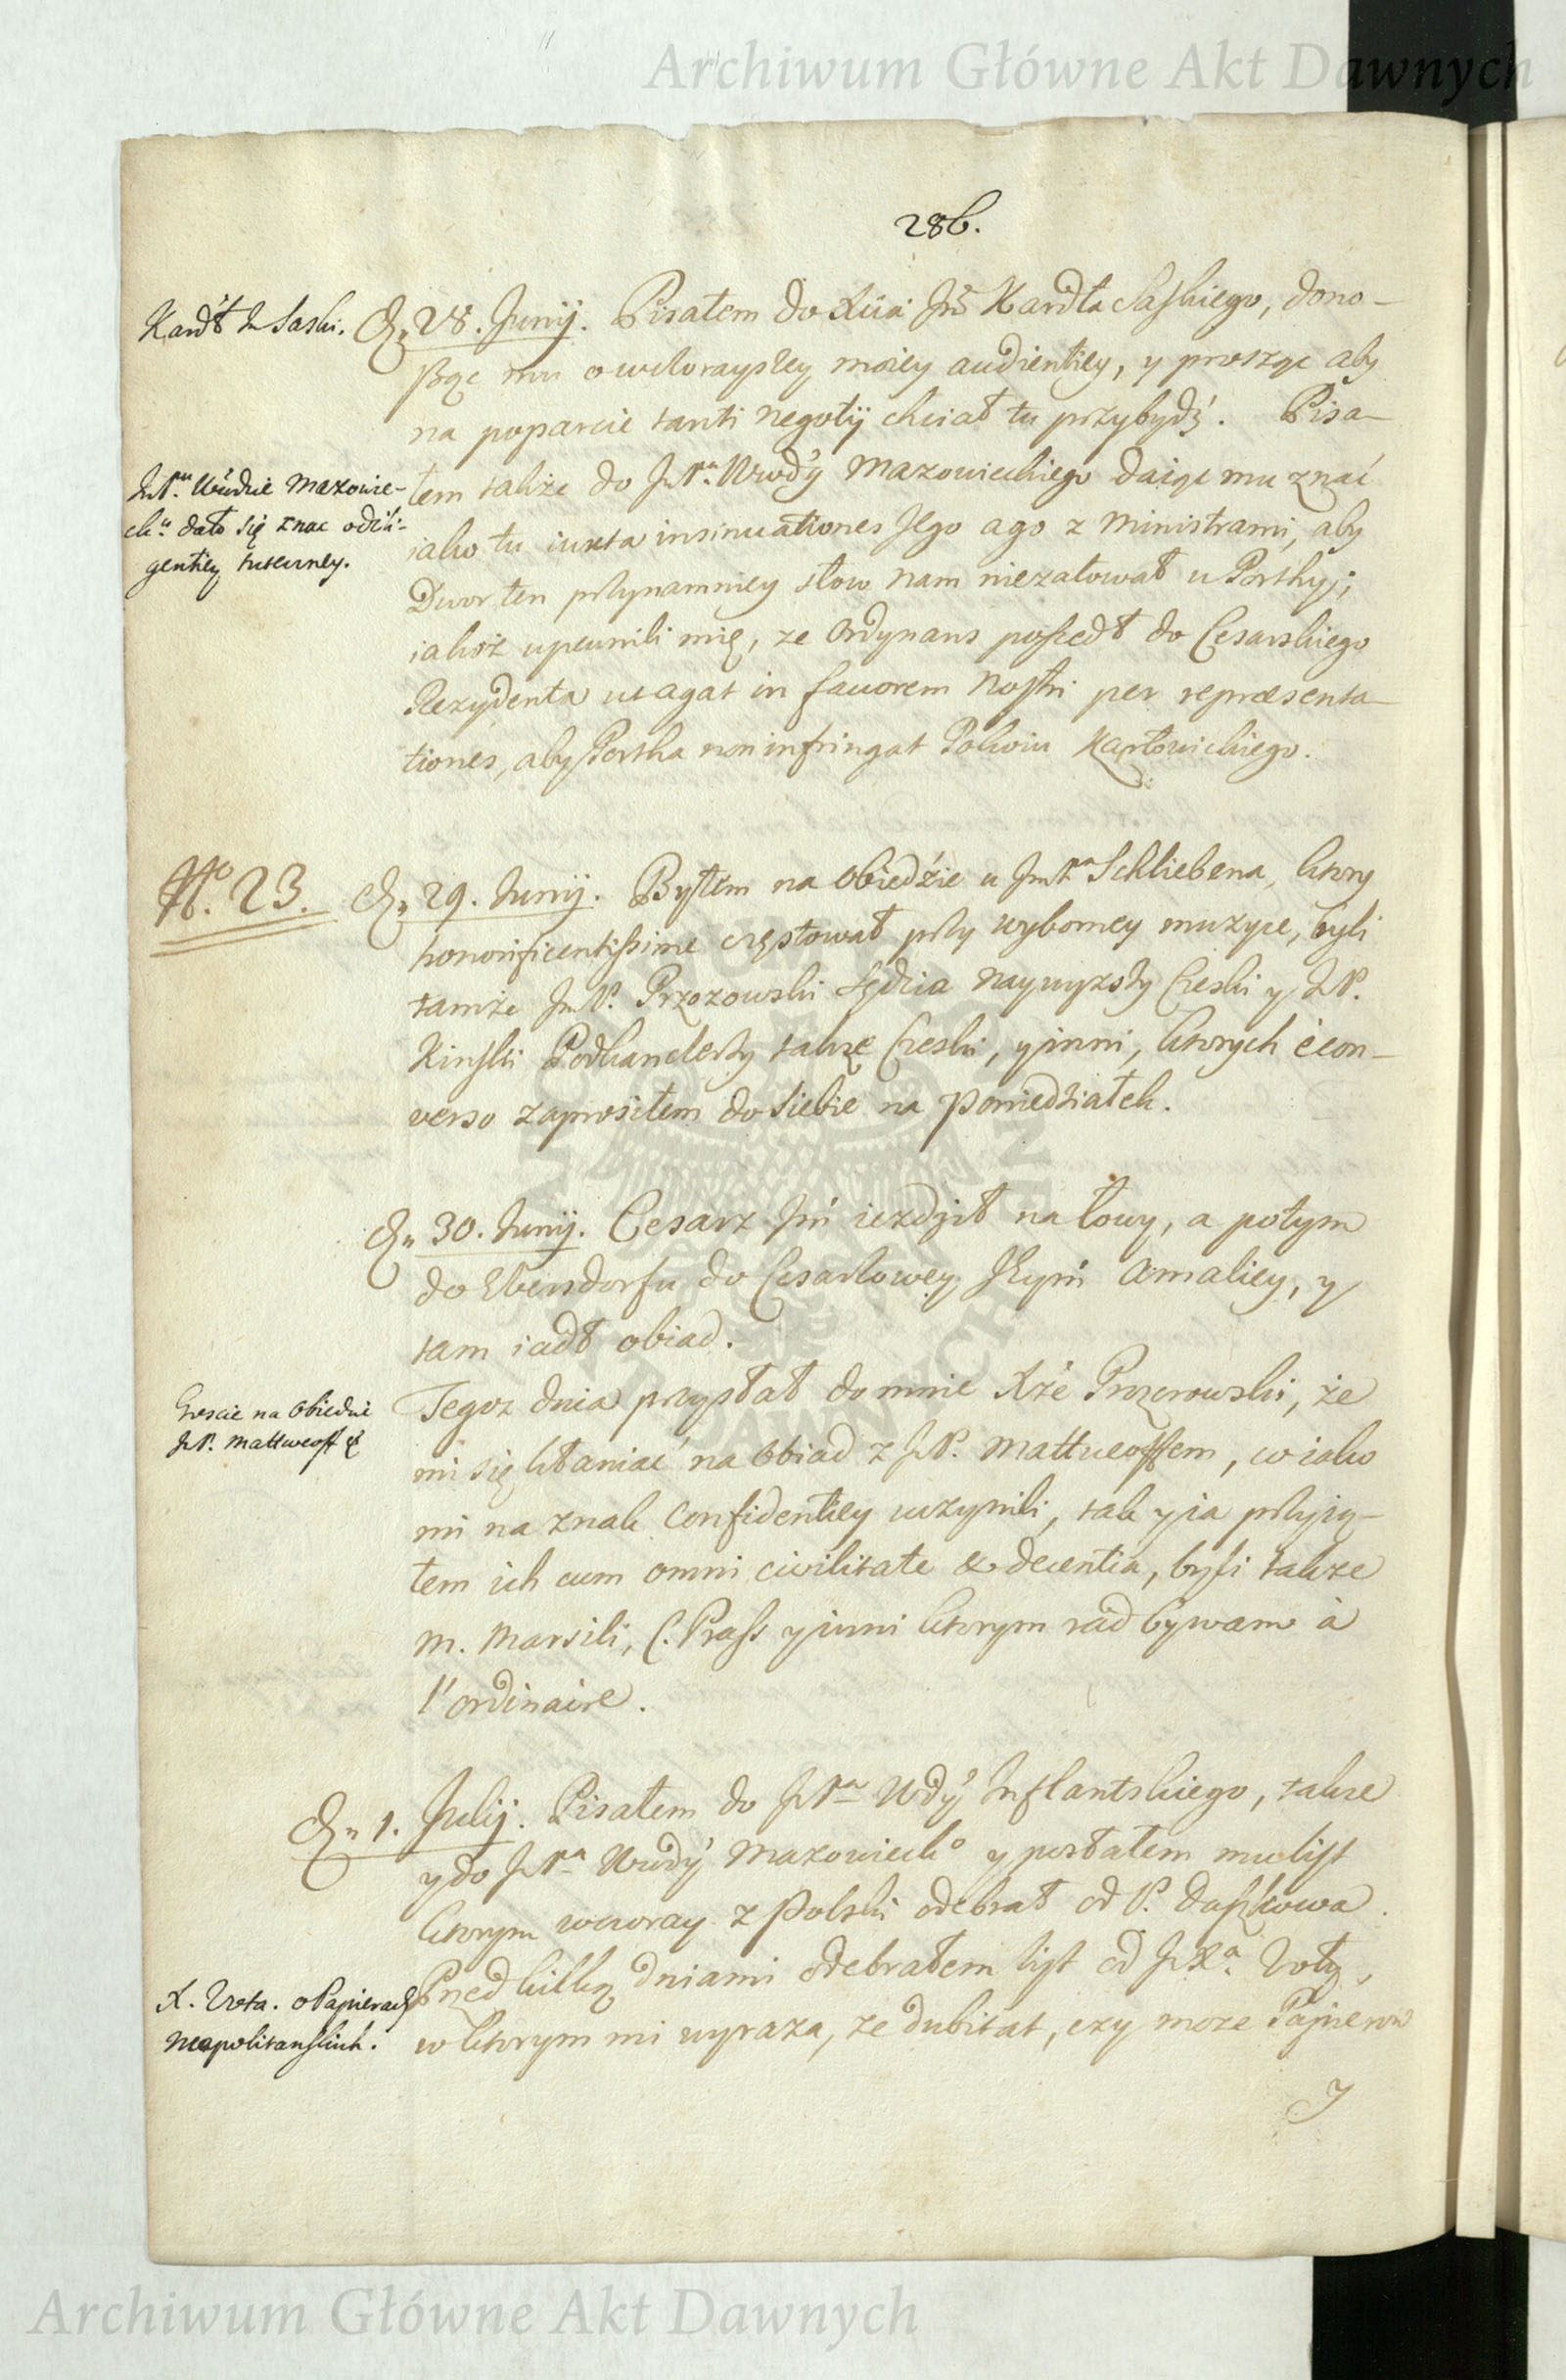 Archiwum Główne Akt Dawnych
286.
Kardł Jn Saski.
D. 28. Junij. Pisałem do Xcia Jm Kardła Saskiego, dono-
sząc mu o wczorayszey moiey audientiey, y prosząc aby
na poparcie tanti negotij chciał tu przybydź. Pisa-
JnPnu Wdzie Mazowie-
cku dało się znac o dili-
gentiey tuteczney.
łem także do JnPna Wwdy Mazowieckiego daiąc mu znać
iako tu iuxta insinuationes Jego ago z Ministrami, aby
Dwor ten przynamniey słow nam nieżałował u Porthy;
iakoż upewnili mię, ze Ordynans poszedł do Cesarskiego
Rezydenta ut agat in favorem nostri per repræsenta-
tiones, aby Portha non infringat Pokoiu Karłowickiego.
No. 23.
D. 29. Junij. Byłem na obiedzie u JmPna Schliebena, ktory
honorificentissime częstował przy wyborney muzyce, byli
tamże JmP. Przozowski Sędzia Naywyzszy Czeski y JnP.
Kinski Podkanclerzy takze Czeski, y inni, ktorych è con-
verso zaprosiłem do siebie na Poniedziałek.
D. 30. Junij. Cesarz Jm iezdził na łowy, a potym
do Ebersdorfu do Cesarzowey Jeymci Amaliey, y
tam iadł obiad.
Goscie na Obiedzie
JnP. Mattweoff &
Tegoz dnia przysłał do mnie Xże Prozorowski, że
mi się kłaniać na Obiad z JnP. Mattweoffem, co iako
mi na znak confidentiey uczynili, tak y ia przyią-
łem ich cum omni civilitate & decentia, byli takze
M. Marsili, C. Prass y inni ktorym rad bywam à
l'ordinaire.
D. 1. Julij. Pisałem do JnPna Wdy Inflantskiego, takze
y do JnPna Wwdy Mazowiecko y posłałem mu list
ktorym wczoray z Polski odebrał od P. Daszkowa.
X. Vota. o Papierach
Neapolitanskich.
Przed kilką dniami odebrałem list od JnXa Voty,
w ktorym mi wyraza, ze dubitat, czy moze Papierow
y
Archiwum Główne Akt Dawnych